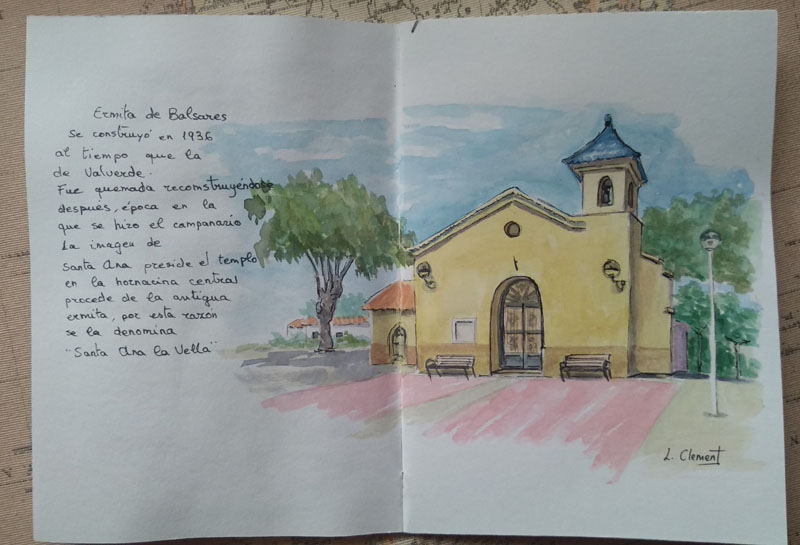 Ermita de Balsares
Se construyó en 1936
al tiempo que la
de Valverde.
Fue quemada reconstruyéndose
después, época en la
que se hizo el campanario
La imagen de
Santa Ana preside el templo
en la hornacina central
procede de la antigua
ermita, por esta razón
se la denomina
"Santa Ana la Vella"
L. Clement